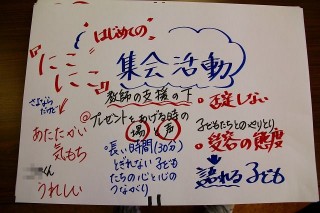 はじめての
『にこにこ』
集会活動
教師の支援の下
さよならだけど
あたたかい
気もち
くん
うれしい
@プレゼントをあげる時の
場 声
・長い時間(30分)
とぎれない子ども
たちの心と心の
つながり
・否定しない
子どもたちとのやりとり
・受容の態度
語れる子ども